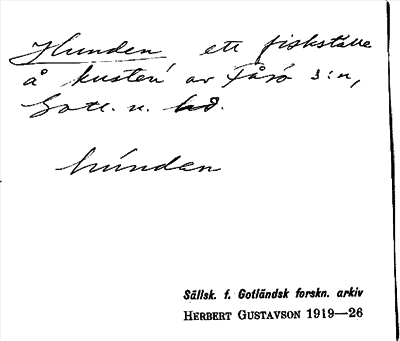 Hunden, ett fiskställe
å kusten av Fårö s:n,
Gotl. n.
húnden
Sällsk. f. Gotländsk forskn. arkiv
HERBERT GUSTAVSON 1919—26